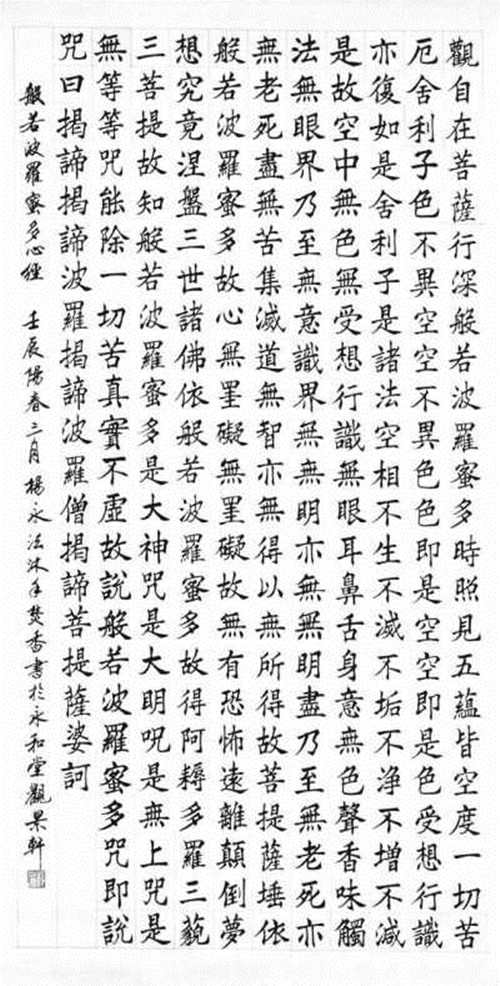 觀自在菩薩行深般若波羅蜜多時照見五蘊皆空度一切苦
厄舍利子色不異空空不異色色即是空空即是色受想行識
亦復如是舍利子是諸法空相不生不滅不垢不淨不增不減
是故空中無色無受想行識無眼耳鼻舌身意無色聲香味觸
法無眼界乃至無意識界無無明亦無無明盡乃至無老死亦
無老死盡無苦集滅道無智亦無得以無所得故菩提薩埵依
般若波羅蜜多故心無罣礙無罣礙故無有恐怖遠離顛倒夢
想究竟涅盤三世諸佛依般若波羅蜜多故得阿耨多羅三藐
三菩提故知般若波羅蜜多是大神咒是大明呪是無上咒是
無等等咒能除一切苦真實不虛故說般若波羅蜜多咒即說
咒曰揭諦揭諦波羅揭諦波羅僧揭諦菩提薩婆訶
般若波羅蜜多心經 壬辰陽春三月楊永法沐手焚香書於永和堂觀軒